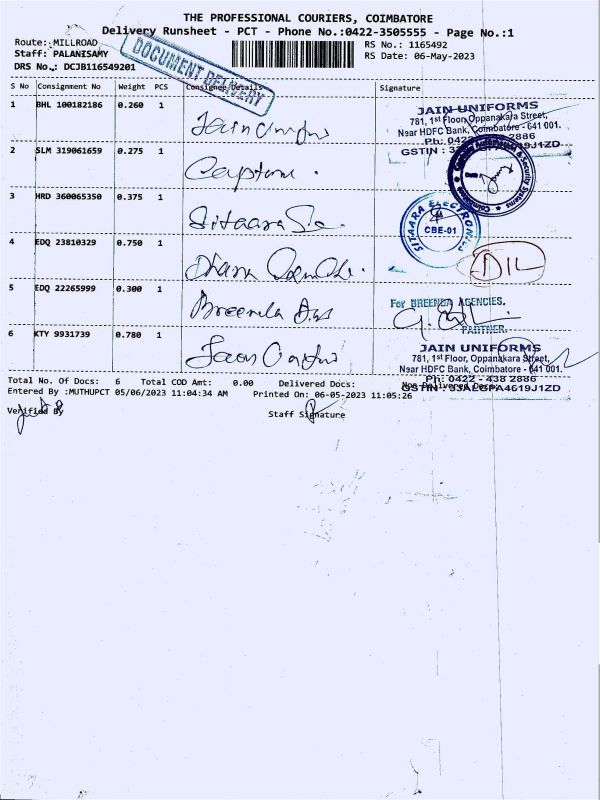 THE PROFESSIONAL COURIERS, COIMBATORE
Delivery Runsheet - PCT - Phone No.:0422-3505555 - Page No.:1
Route: MILLROAD
Staff: PALANISAMY
DRS No.: DCJB116549201
DOCUMENT DELIVERY
RS No.: 1165492
RS Date: 06-May-2023
S No Consignment No Weight PCS Consignee/Details Signature
1 BHL 100182186 0.260 1 Jain
JAIN UNIFORMS
781, 1st Floor, Oppanakara Street,
Near HDFC Bank, Coimbatore - 641 001.
Ph: 0422 2886
GSTIN : 1ZD
2 SLM 319061659 0.275 1
& Security Systems
Coimbatore
3 HRD 360065350 0.375 1 Sitaara
SITAARA ELECTRONICS
CBE-01
4 EDQ 23810329 0.750 1
5 EDQ 22265999 0.300 1 Breenda
For BREENDA AGENCIES.
PARTNER.
6 KTY 9931739 0.780 1
JAIN UNIFORMS
781, 1st Floor, Oppanakara Street,
Near HDFC Bank, Coimbatore - 641 001.
Ph: 0422 - 438 2886
Total No. Of Docs: 6 Total COD Amt: 0.00 Delivered Docs: Non-Delivered Docs:
Entered By :MUTHUPCT 05/06/2023 11:04:34 AM Printed On: 06-05-2023 11:05:26
Verified By
Staff Signature